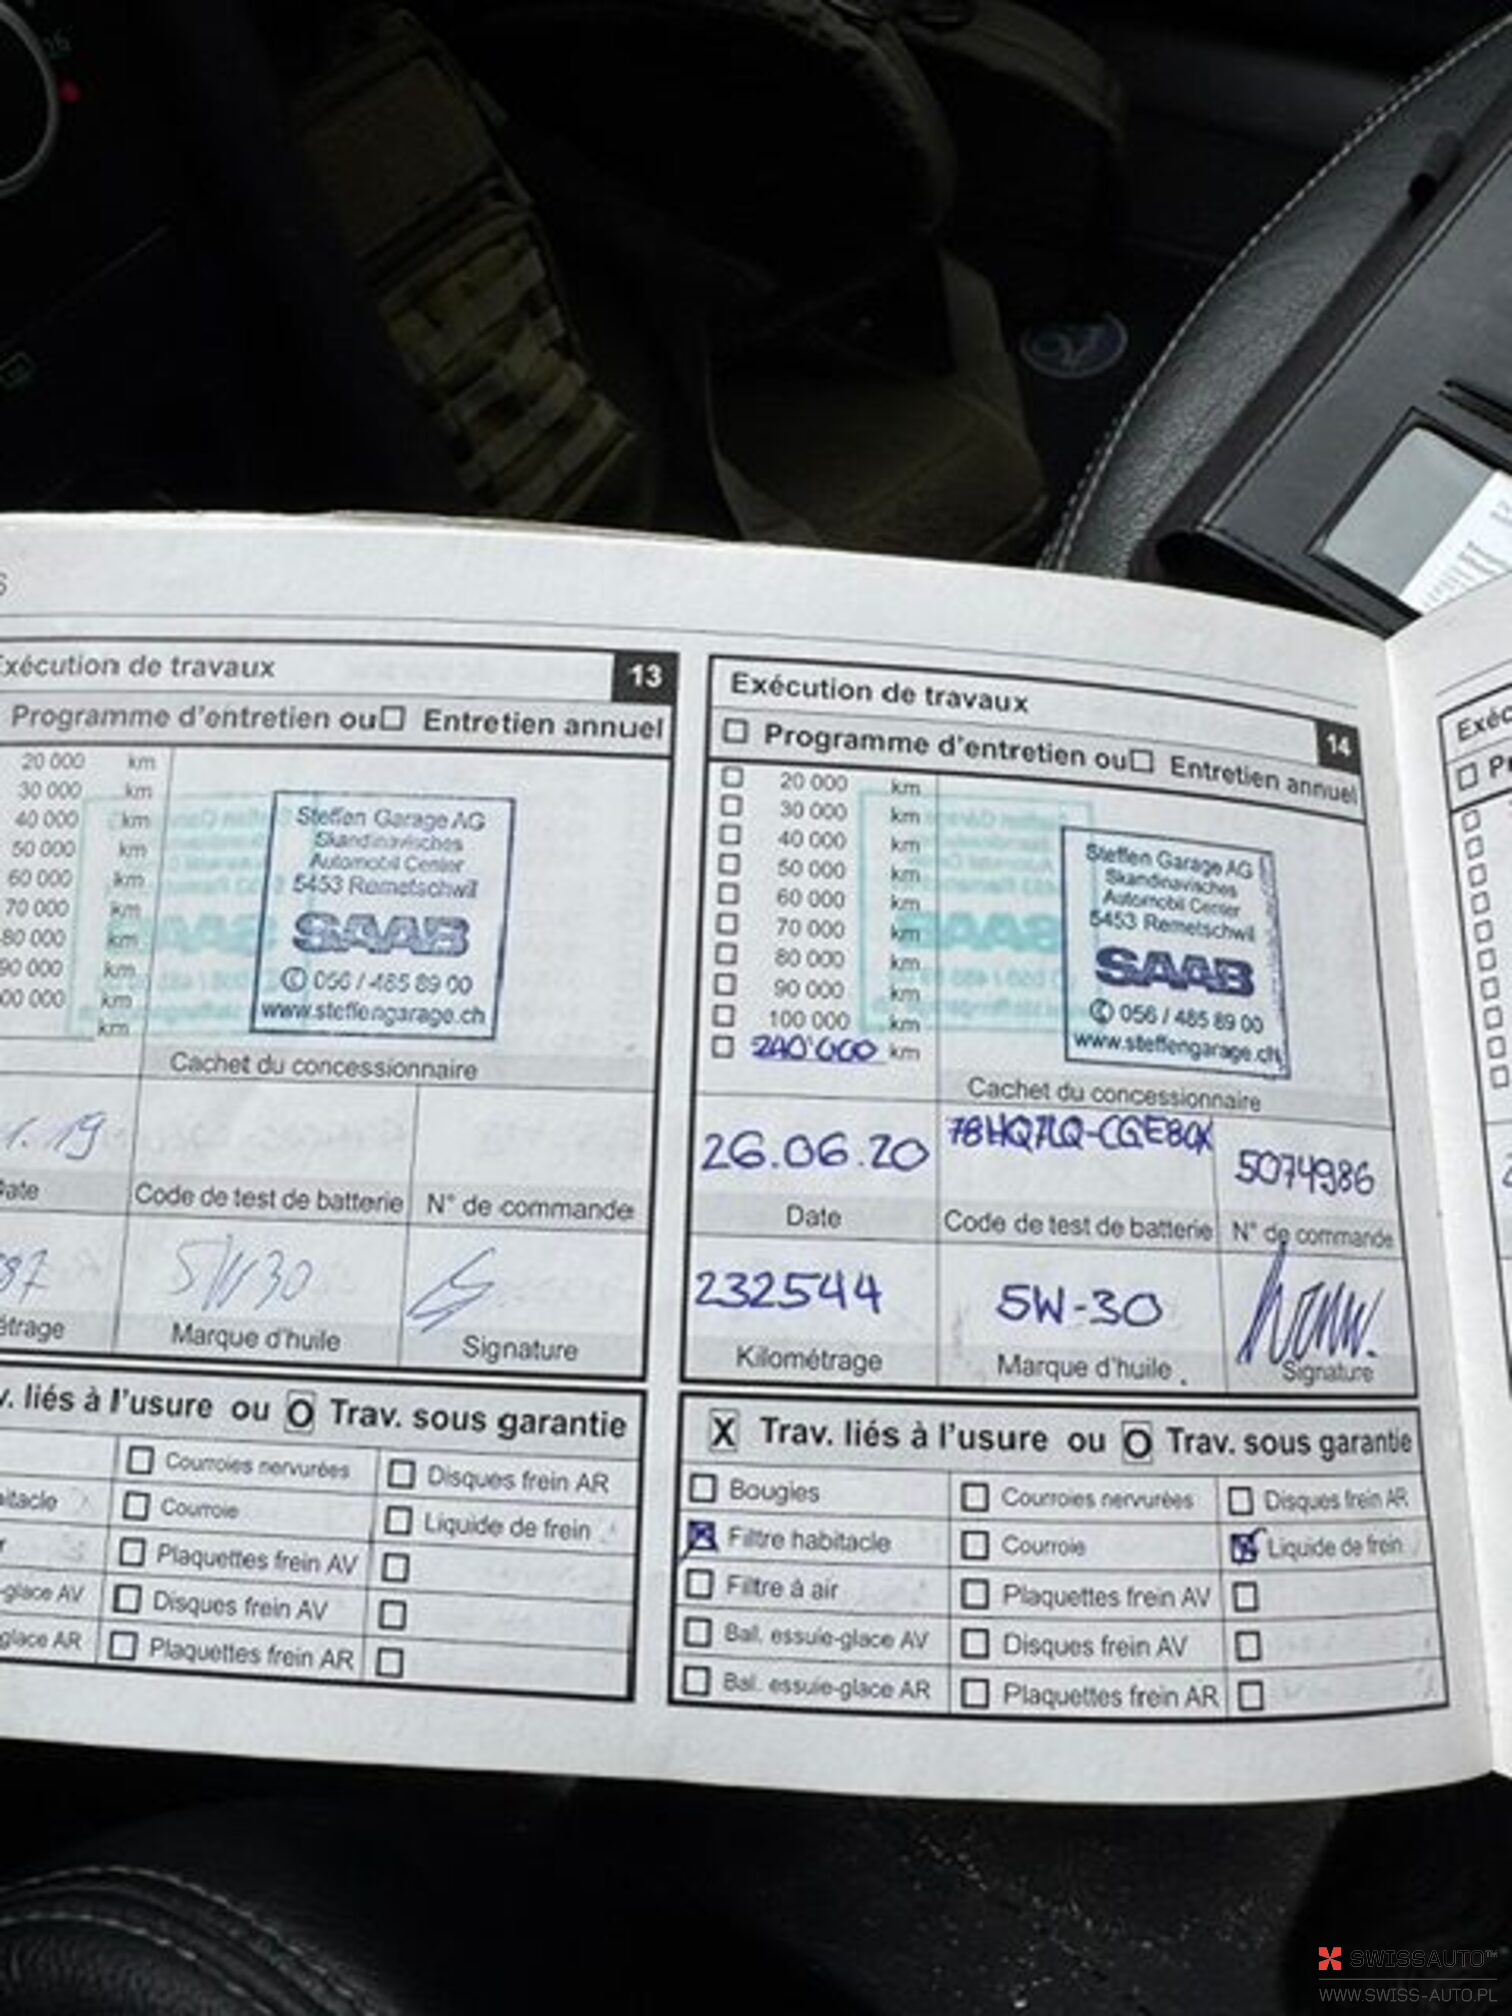 Exécution de travaux
13
Programme d'entretien ou Entretien annuel
20 000 km
30 000 km
40 000 km
50 000 km
60 000 km
70 000 km
80 000 km
90 000 km
km
km
Steffen Garage AG
Skandinavisches
Automobil Center
5453 Remetschwil
SAAB
056 / 485 89 00
www.steffengarage.ch
Cachet du concessionnaire
Code de test de batterie
N° de commande
5W30
Marque d'huile
Signature
liés à l'usure ou O Trav. sous garantie
Courroies nervurées
Disques frein AR
Courroie
Liquide de frein
Plaquettes frein AV
Disques frein AV
Plaquettes frein AR
Exécution de travaux
14
Programme d'entretien ou Entretien annuel
20 000 km
30 000 km
40 000 km
50 000 km
60 000 km
70 000 km
80 000 km
90 000 km
100 000 km
240'000 km
Steffen Garage AG
Skandinavisches
Automobil Center
5453 Remetschwil
SAAB
056 / 485 89 00
www.steffengarage.ch
Cachet du concessionnaire
26.06.20
5074986
Date
Code de test de batterie
N° de commande
232544
5W-30
Kilométrage
Marque d'huile
Signature
X Trav. liés à l'usure ou O Trav. sous garantie
Bougies
Courroies nervurées
Disques frein AR
Filtre habitacle
Courroie
Liquide de frein
Filtre à air
Plaquettes frein AV
Bal. essuie-glace AV
Disques frein AV
Bal. essuie-glace AR
Plaquettes frein AR
SWISSAUTO™
WWW.SWISS-AUTO.PL